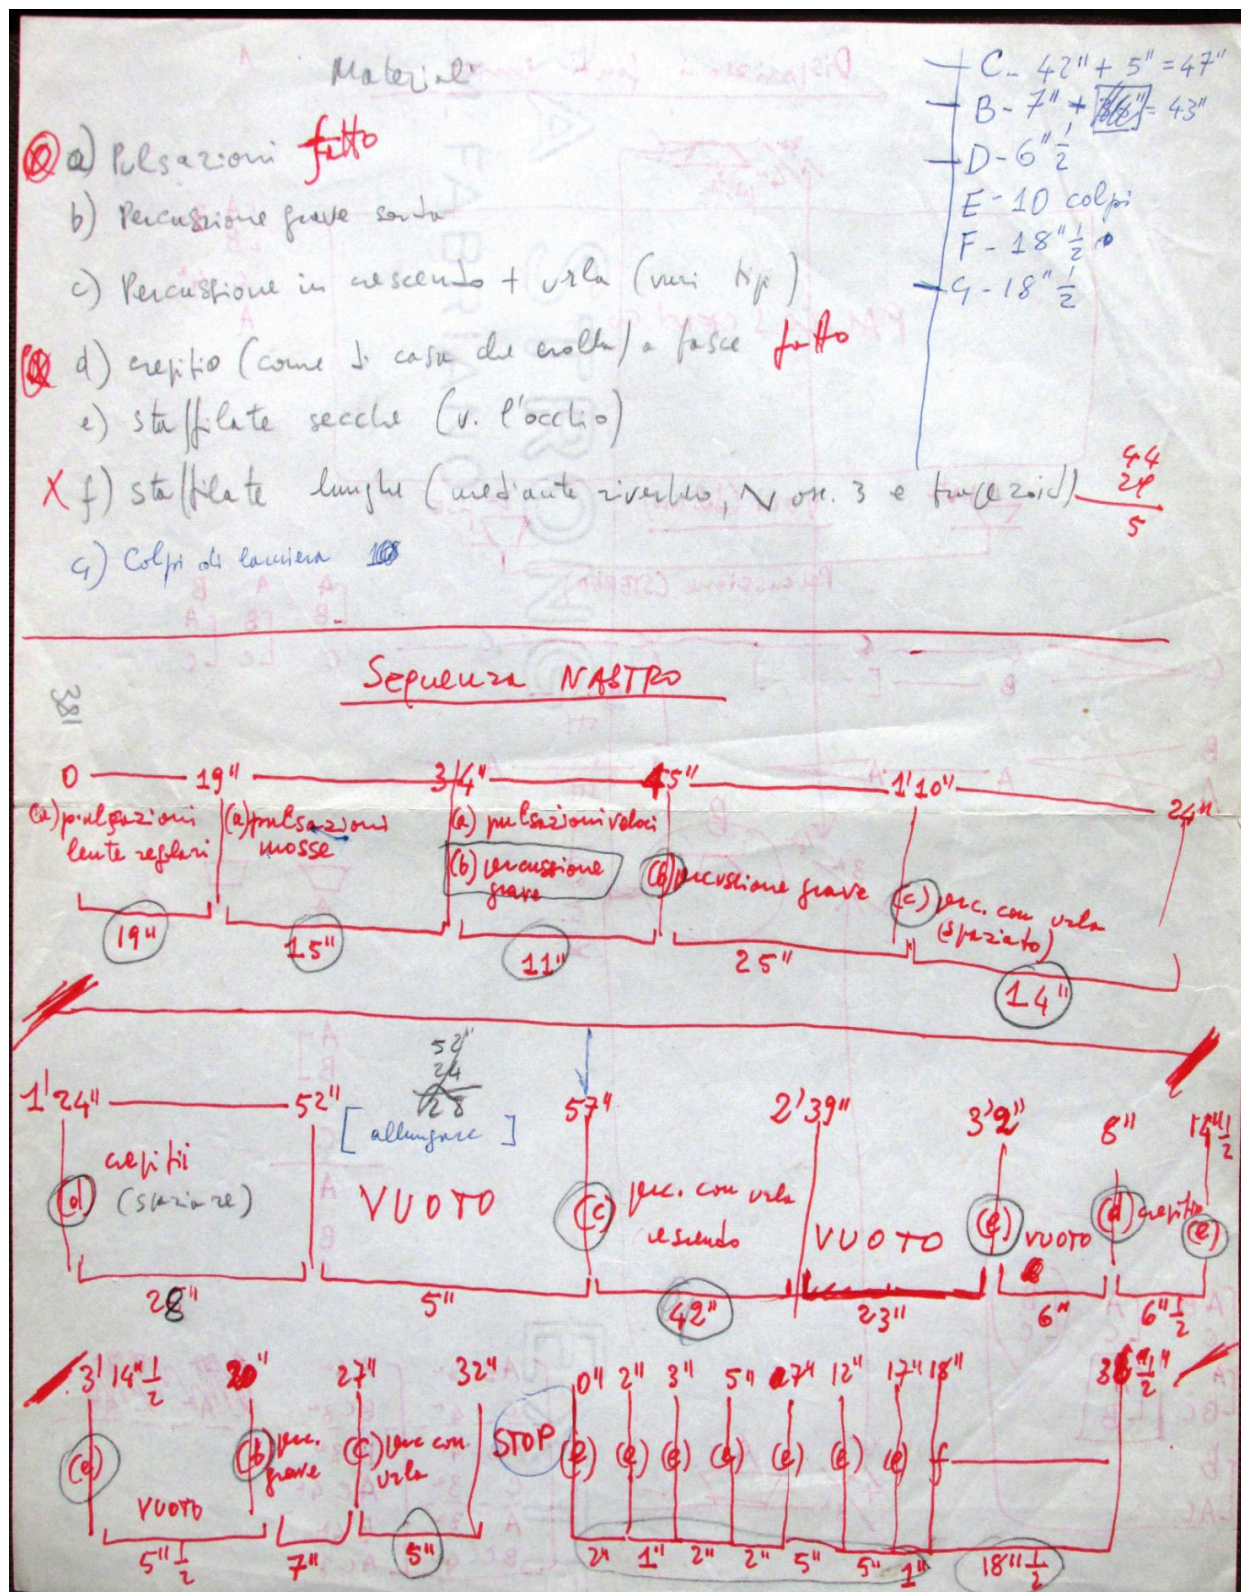 Materiali
C - 42" + 5" = 47"
B - 7" + = 43"
D - 6" 1/2
E - 10 colpi
F - 18" 1/2
G - 18" 1/2
a) Pulsazioni fatto
b) Percussione grave sorda
c) Percussione in crescendo + urla (vari tipi)
d) crepitio (come di casa che crolla) a fasce fatto
e) staffilate secche (v. l'occhio)
X f) staffilate lunghe (mediante riverbero, 3 e trapezoid)
44
5
G) Colpi di lamiera
Sequenza NASTRO
381
0 19" 34" 45" 1'10" 24"
(a) pulsazioni lente regolari
(a) pulsazioni mosse
(a) pulsazioni veloci
(b) percussione grave
(b) percussione grave
(c) perc. con urla (spaziato)
19" 15" 11" 25" 14"
52"
24
28
1'24" 52" [allungare] 57" 2'39" 3'2" 8" 14" 1/2
(d) crepitii (spaziare)
VUOTO
(c) perc. con urla crescendo
VUOTO
(e) VUOTO (d) crepitio (e)
28" 5" 42" 23" 6" 6" 1/2
3'14" 1/2 20" 27" 32" 0" 2" 3" 5" 7" 12" 17" 18" 36" 1/2
(e) VUOTO
(b) perc. grave
(c) perc con urla
STOP (e) (e) (e) (e) (e) (e) (e) f
5" 1/2 7" 5" 2" 1" 2" 2" 5" 5" 1" 18" 1/2